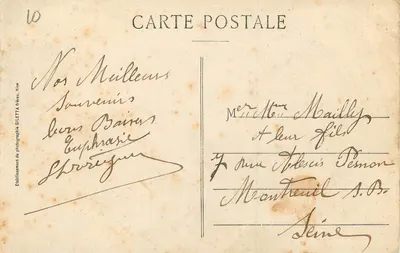 10
CARTE POSTALE
Nos Meilleurs
Souvenirs
bons Baisers
Euphrasie
Mer Mme Mailly
et leur fils
7 rue Alexis Pesnon
Montreuil S. B.
Seine
Etablissement de photographie GILETTA frères, Nice